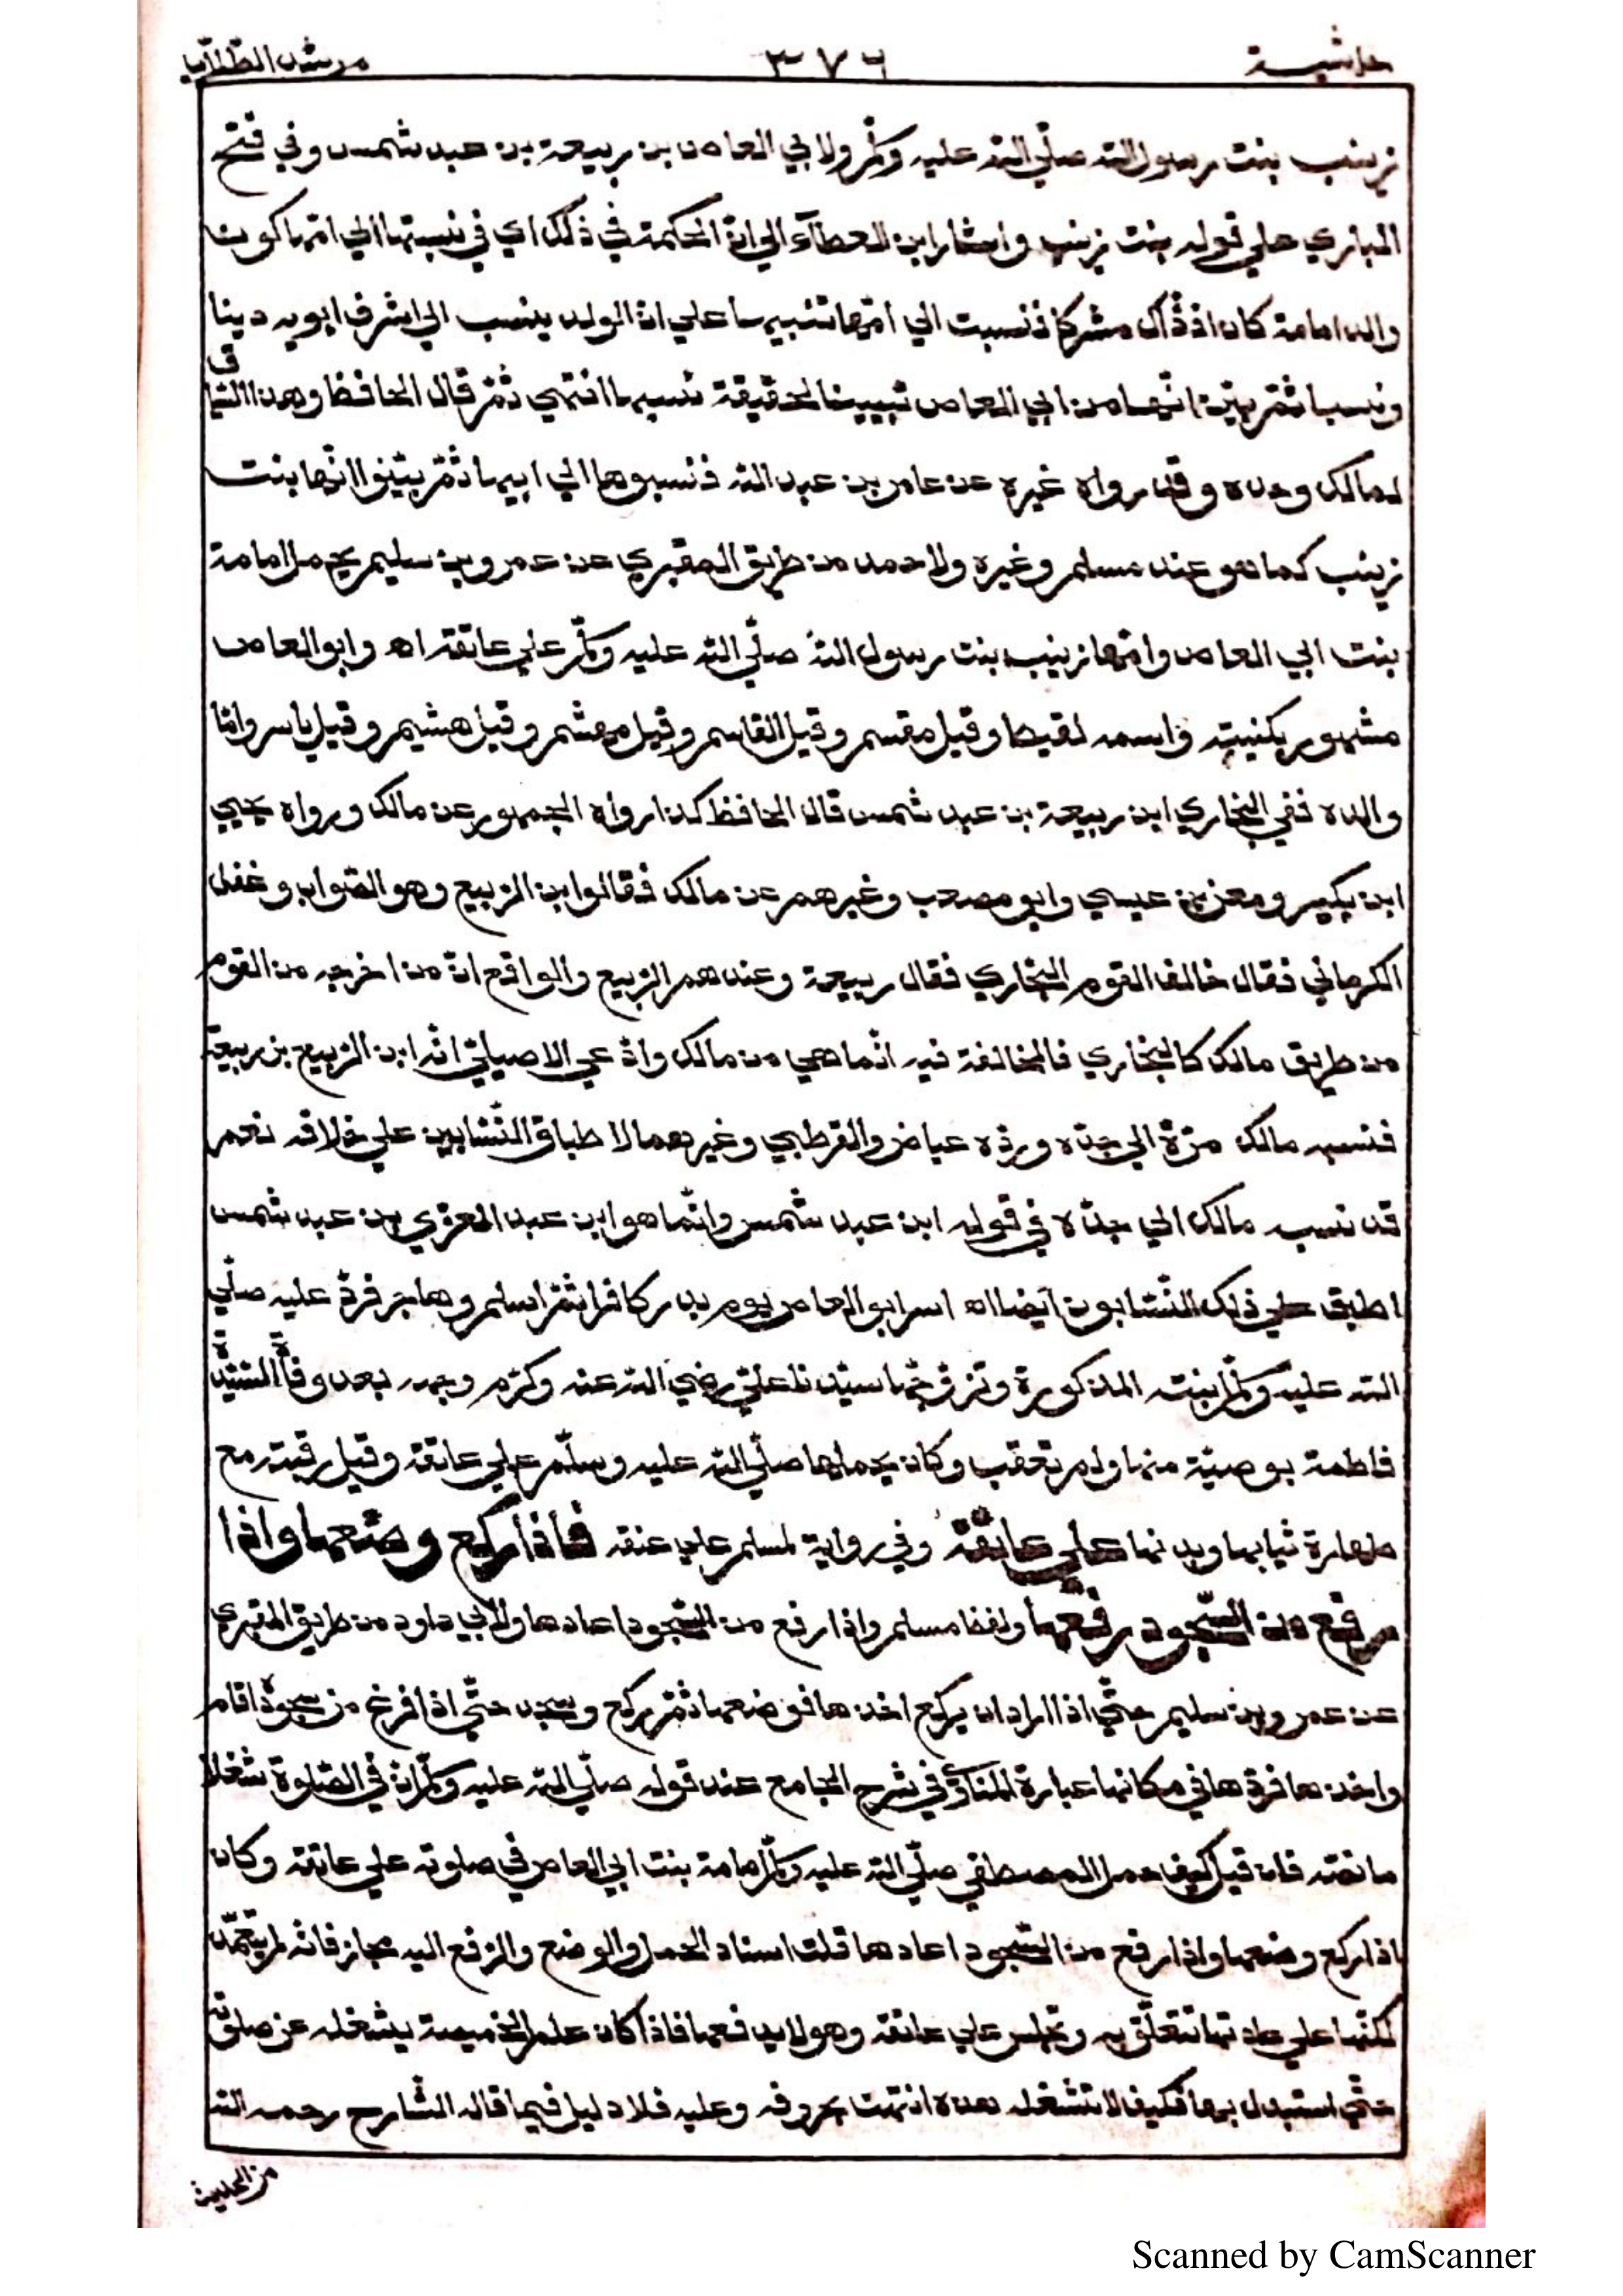 حاشية ٣٧٦ مرشد الطلاب
زينب بنت رسول الله صلّي الله عليه وسلّم ولابي العاص بن ربيعة بن عبد شمس وفي فتح
الباري علي قوله بنت زينب واشار ابن العطآء الي انّ الحكمة في ذلك اي في نسبتها الي امّها كون
والد امامة كان اذ ذاك مشركا فنسبت الي امّها تنبيها علي انّ الولد ينسب الي اشرف ابويه دينا
ونسبا ثمّ بيّن انّها من ابي العاص تبيينا لحقيقة نسبها انتهي ثمّ قال الحافظ وهذا السّياق
لمالك وحده وقد رواه غيره عن عامر بن عبد الله فنسبوها الي ابيها ثمّ بيّنوا انّها بنت
زينب كما هو عند مسلم وغيره ولاحمد من طريق المقبري عن عمرو بن سليم يحمل امامة
بنت ابي العاص وامّها زينب بنت رسول الله صلّي الله عليه وسلّم علي عاتقه اه وابو العاص
مشهور بكنيته واسمه لقيط وقيل مقسم وقيل القاسم وقيل مهشم وقيل هشيم وقيل ياسر وامّا
والده ففي البخاري ابن ربيعة بن عبد شمس قال الحافظ كذا رواه الجمهور عن مالك ورواه يحيي
ابن بكير ومعن بن عيسي وابو مصعب وغيرهم عن مالك فقالوا ابن الربيع وهو الصّواب وغفل
الكرماني فقال خالف القوم البخاري فقال ربيعة وعندهم الرّبيع والواقع انّ من اخرجه من القوم
من طريق مالك كالبخاري فالمخالفة فيه انّما هي من مالك وادّعي الاصيليّ انّه ابن الرّبيع بن ربيعة
فنسبه مالك مرّة الي جدّه وردّه عياض والقرطبي وغيرهما لاطباق النّسّابين علي خلافه نعم
قد نسبه مالك الي جدّه في قوله ابن عبد شمس وانّما هو ابن عبد العزّي بن عبد شمس
اطبق علي ذلك النّسّابون ايضا اه اسر ابو العاص يوم بدر كافرا ثمّ اسلم وهاجر فردّ عليه صلّي
الله عليه وسلّم ابنته المذكورة وتزوّجها سيّدنا عليّ رضي الله عنه وكرّم وجهه بعد وفاة السّيّدة
فاطمة بوصيّة منها ولم تعقب وكان يحملها صلّي الله عليه وسلّم علي عاتقه وقيل رقبته مع
طهارة ثيابها وبدنها علي عاتقه وفي رواية لمسلم علي عنقه فاذا ركع وضعها واذا
رفع من السّجود رفعها ولفظ مسلم واذا رفع من السّجود اعادها ولابي داود من طريق المقبري
عن عمرو بن سليم حتّي اذا اراد ان يركع اخذها فوضعها ثمّ ركع وسجد حتّي اذا فرغ من سجوده قام
واخذها فردّها في مكانها عبارة المناوي في شرح الجامع عند قوله صلّي الله عليه وسلّم انّ في الصّلوة شغلا
ما نصّه فان قيل كيف حمل المصطفي صلّي الله عليه وسلّم امامة بنت ابي العاص في صلوته علي عاتقه وكان
اذا ركع وضعها واذا رفع من السّجود اعادها قلت اسناد الحمل والوضع والرّفع اليه مجاز فانّه لم يتعمّد
لكنّها علي عادتها تتعلّق به وتجلس علي عاتقه وهو لا يدفعها فاذا كان علم الخميصة يشغله عن صلوته
حتّي استبدل بها فكيف لا تشغله هذه انتهت بحروفه وعليه فلا دليل فيما قاله الشّارح رحمه الله
من الحديث
Scanned by CamScanner